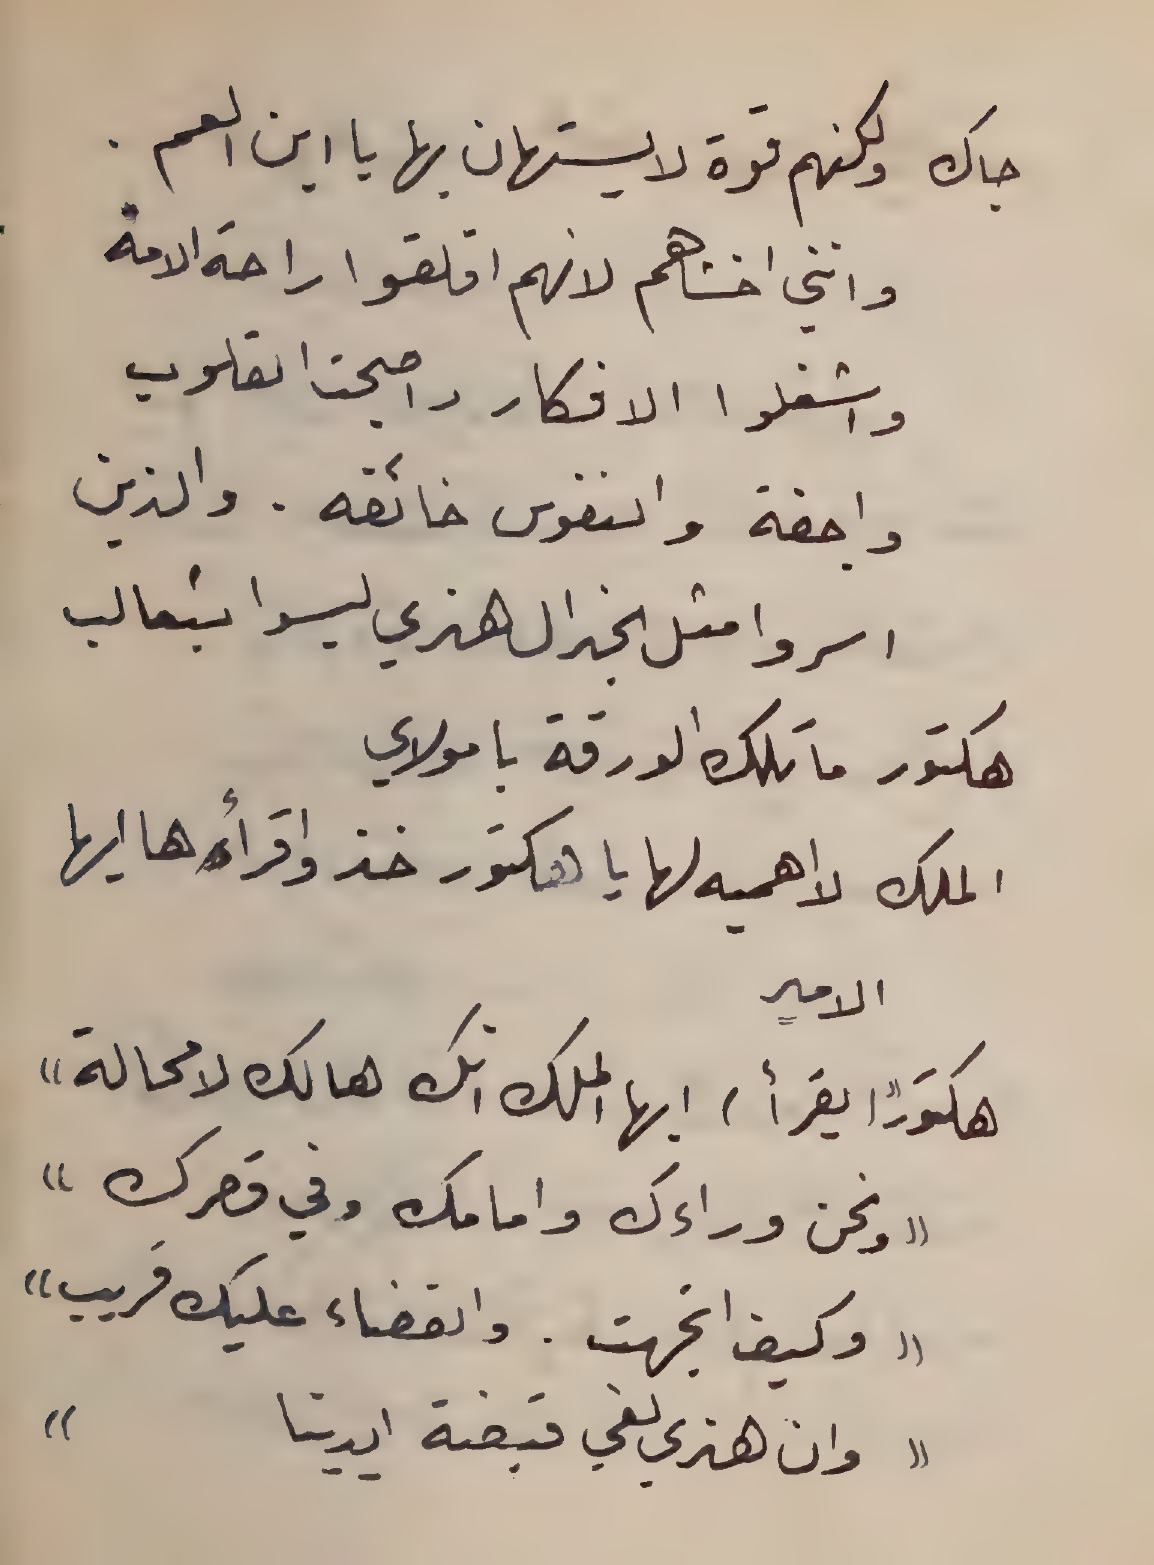 جاك ولكنهم قوة لا يستهان بها يا ابن العم .
وانني اخشاهم لانهم اقلقوا راحة الامة
واشغلوا الافكار واصبحت القلوب
واجفة والنفوس خائفه . والذين
اسروا مثل الجنرال هنري ليسوا بثعالب
هكتور ما تلك الورقة يا مولاي
الملك لا اهميه لها يا هكتور خذ واقرأها ايها
الامير
هكتور (يقرأ) ايها الملك انك هالك لا محالة »
« ونحن وراءك وامامك وفي قصرك »
« وكيف اتجهت . والقضاء عليك قريب »
« وان هنري لفي قبضة ايدينا »